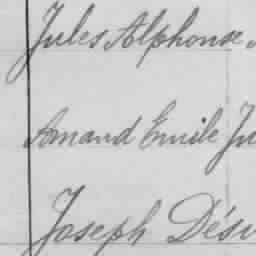 Jules Alphonse
Amand Emile Ju
Joseph Dési